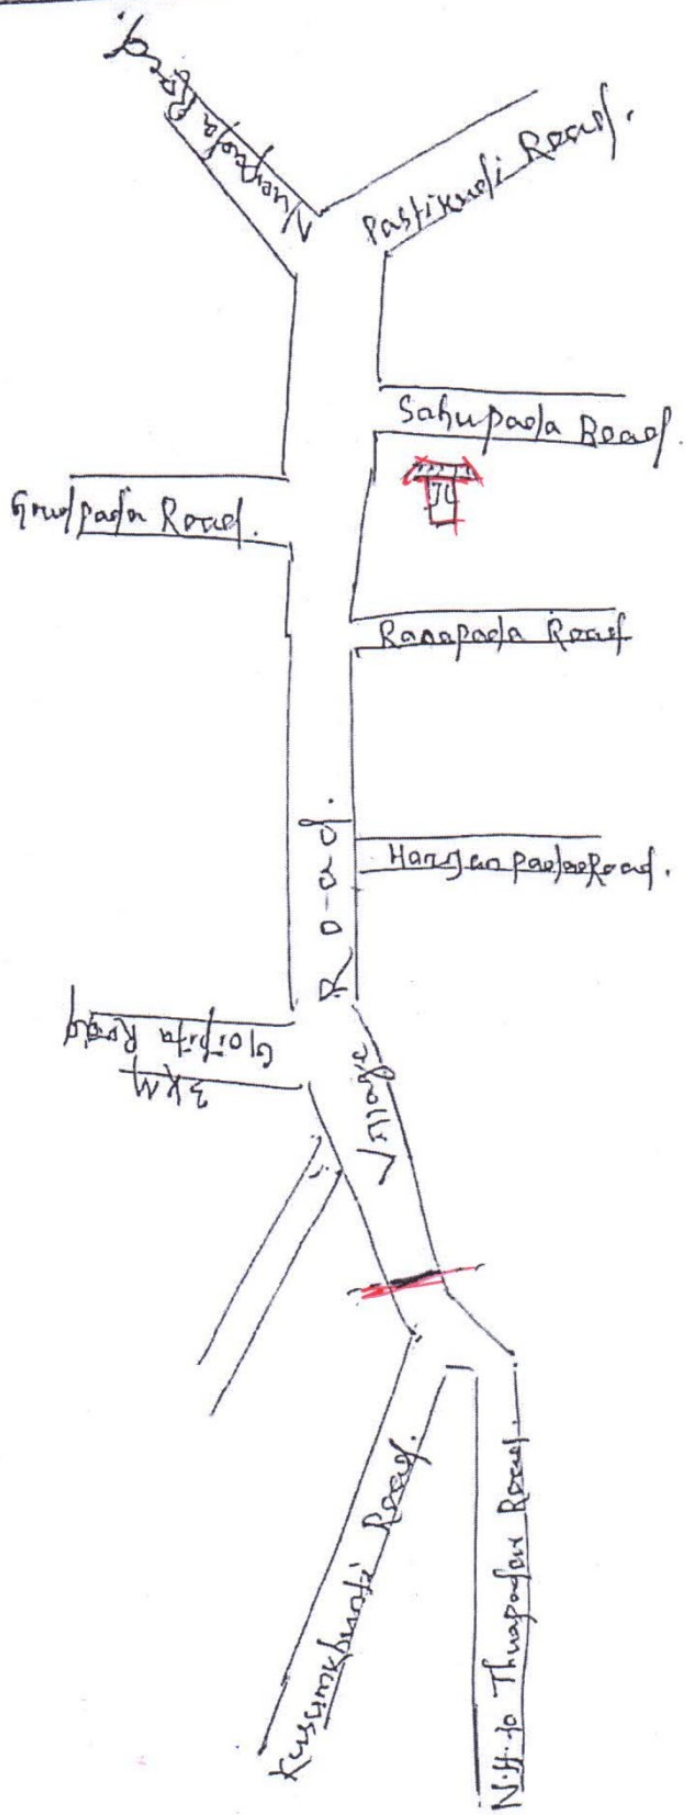 Nuapada Road.
Pastikudi Road.
Sahupada Road.
Goudpada Road.
Ranapada Road
Harijanpada Road.
Road.
Gloripita Road
3 KM
Village
Kusumkhunti Road.
N.H. to Thuapadar Road.